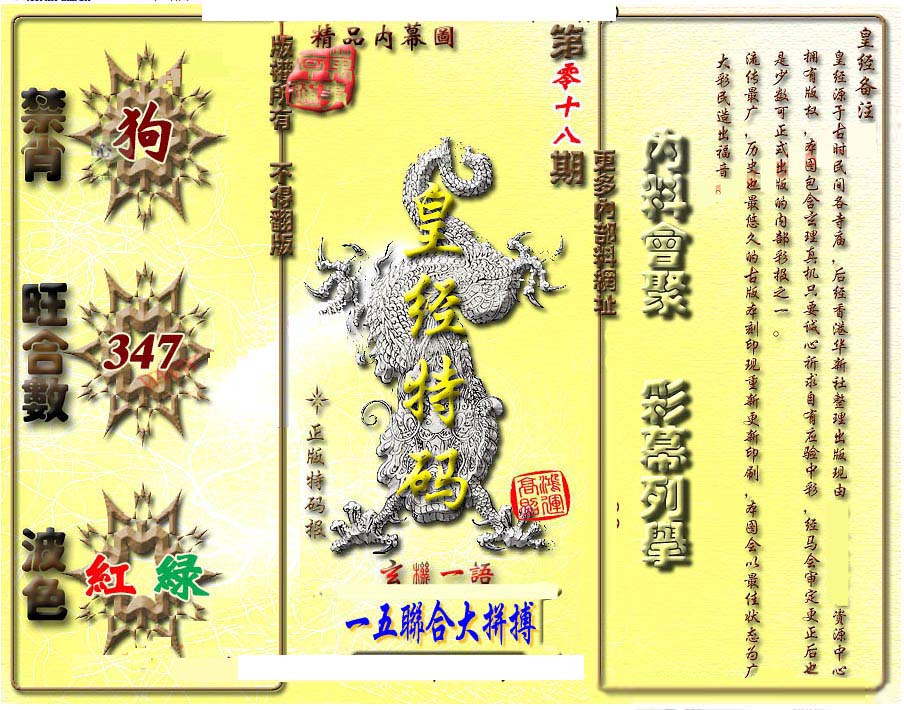 皇经备注
皇经源于古时民间各寺庙，后经香港华新社整理出版现由 资源中心
拥有版权，本图包含玄理真机只要诚心祈求自有应验中彩，经马会审定更正后也
是少数可正式出版的内部彩报之一。
流传最广，历史也最悠久的古版本刻印现重新更新印刷，本图会以最佳状态为广
大彩民造出福音
内料會聚 彩幕列舉
更多内部料網址
第零十八期
精品内幕圖
皇经特码
正版特码报
鸿運高照
玄機一語
一五聯合大拼搏
版權所有 不得翻版
禁肖
狗
旺合數
347
波色
紅 緑